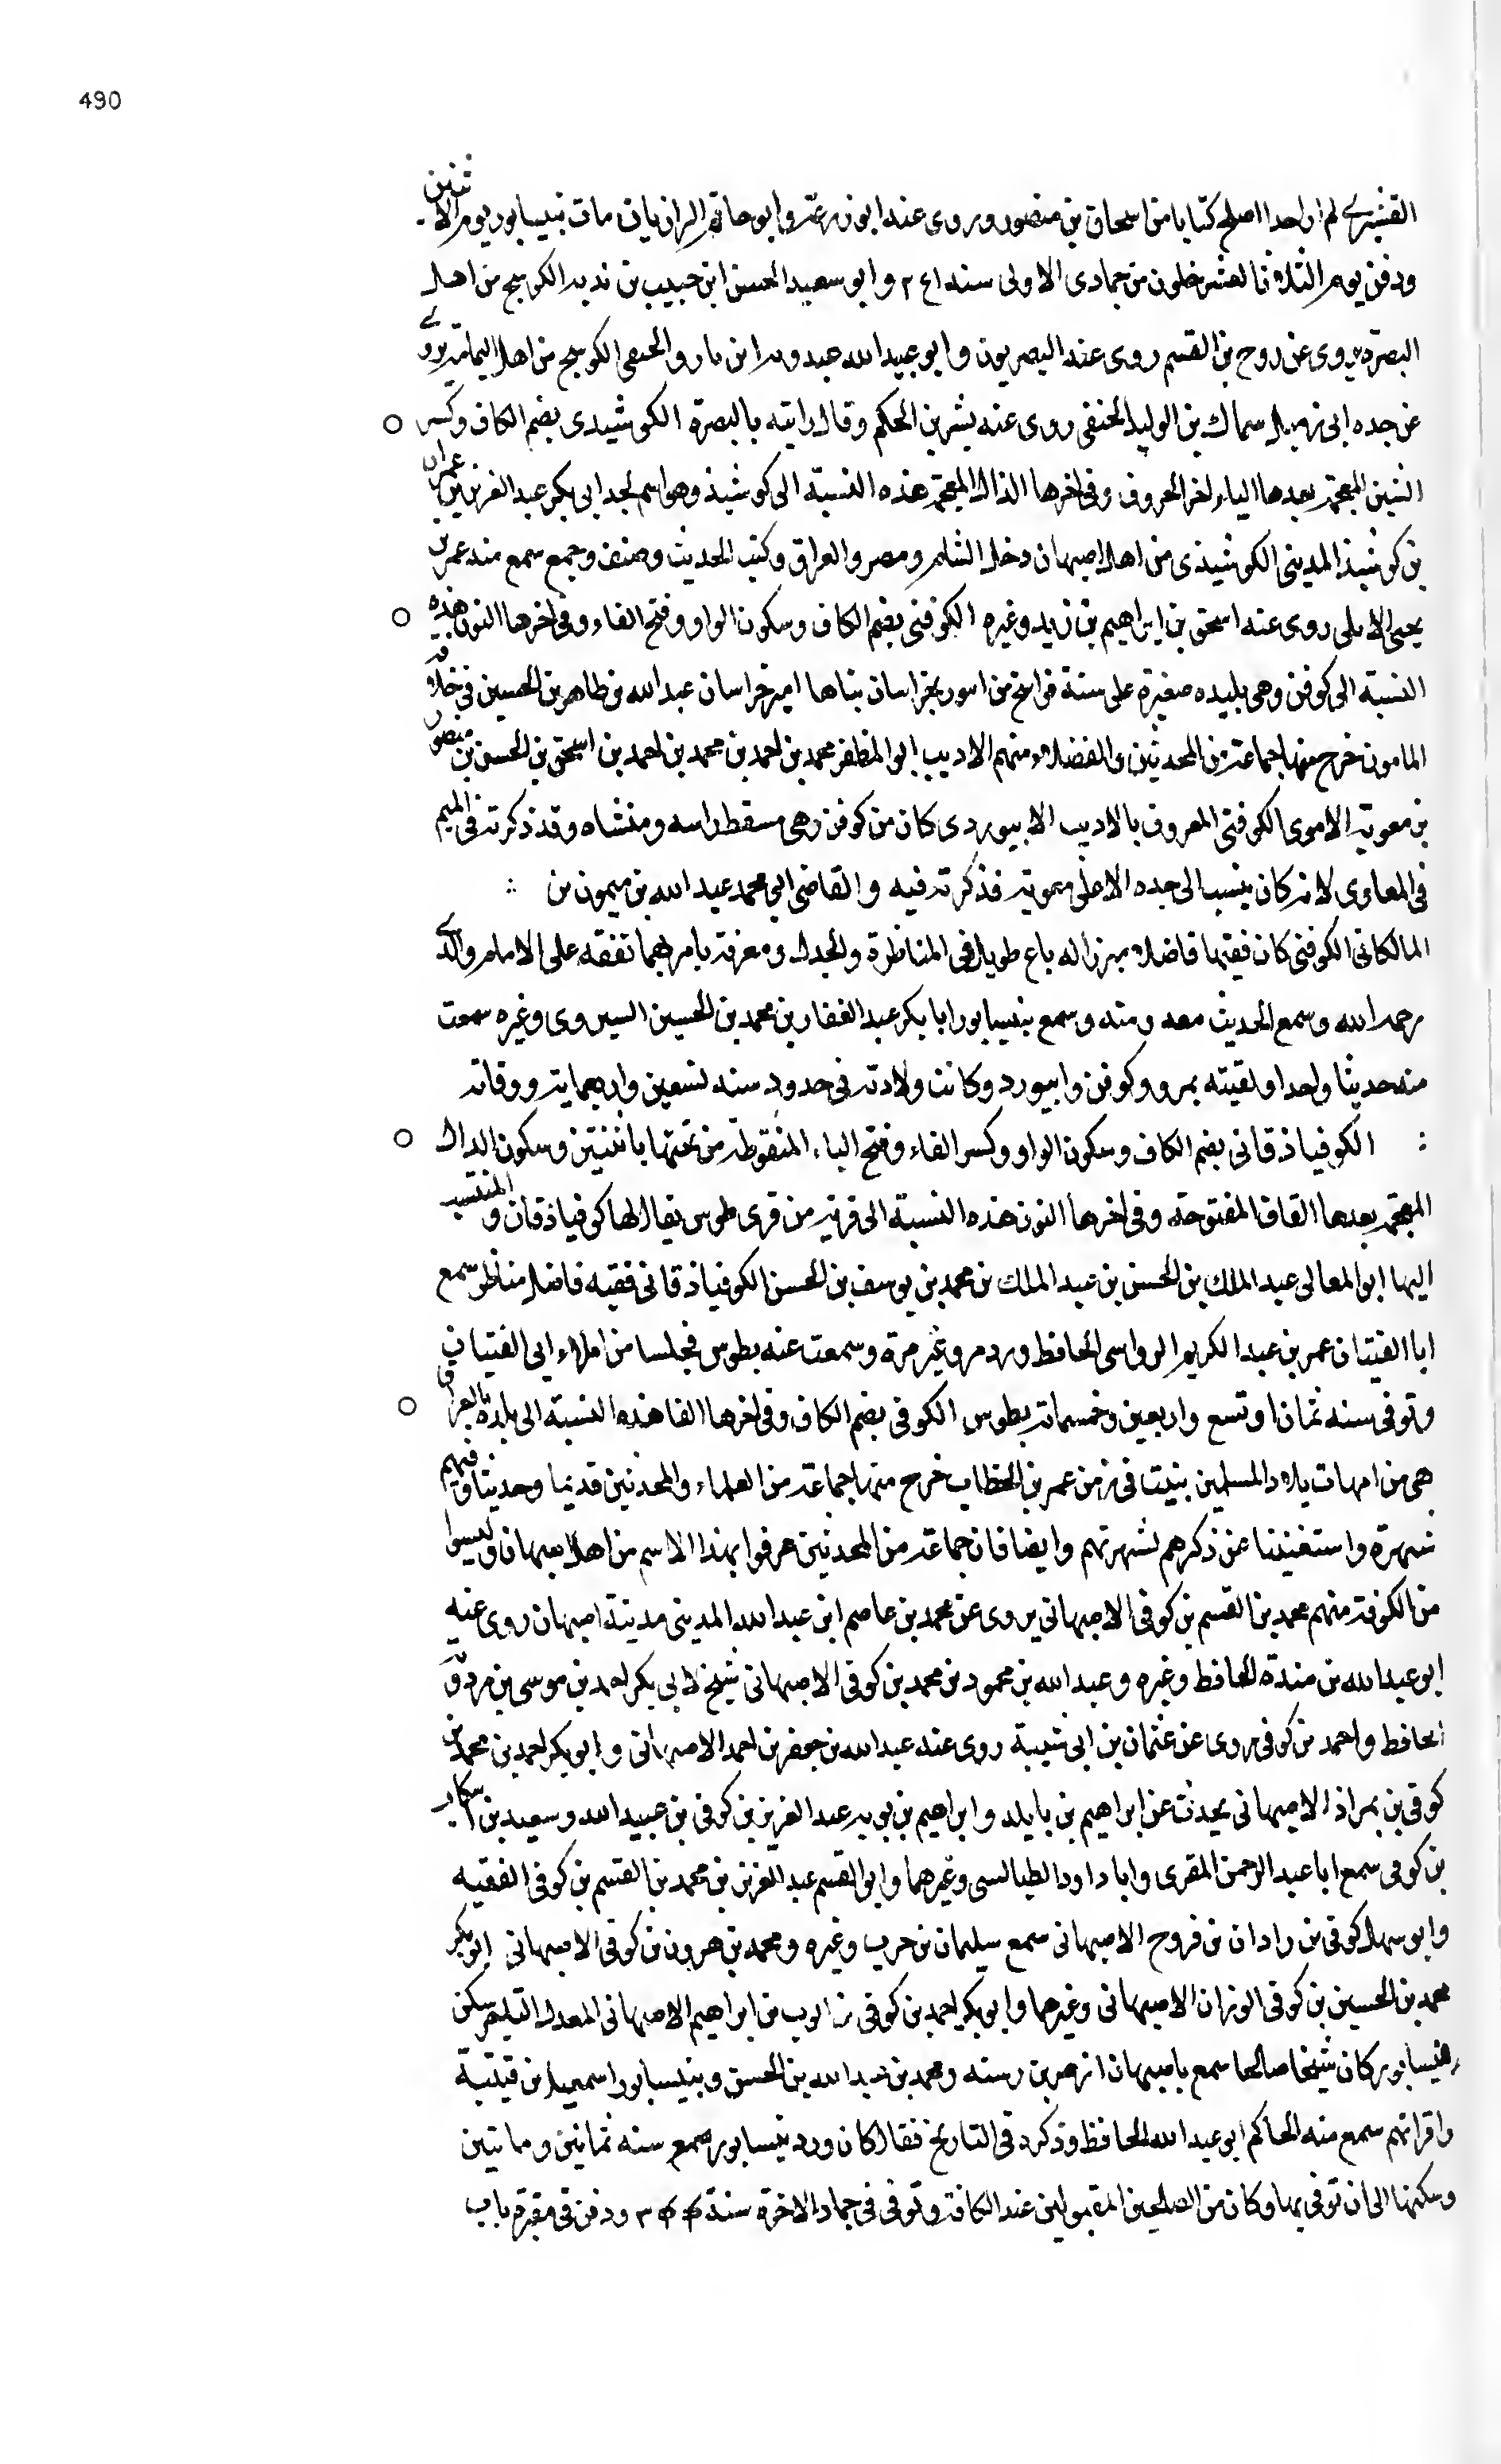 490
القشيرى لم ار احدا اصلح كتابا من اسحاق بن منصور وروى عنه ابو زرعة وابو حاتم الرازيان مات بنيسابور يوم الاثنين
ودفن يوم الثلاثا لعشر خلون من جمادى الاولى سنه ٢٤١ وابو سعيد الحسن ابن حبيب بن ندبه الكوسج من اهل
البصرة يروى عن روح بن القسم روى عنه البصريون وابو عبيد الله الحنفى الكوسج من اهل اليمامة يروى
عن جده ابى زميل سماك بن الوليد الحنفى روى عنه بشر بن الحكم وقال رايته بالبصرة الكوشيدى بضم الكاف وكسر
الشين المعجمة بعدها الياء اخر الحروف وفى اخرها الذال المعجمة هذه النسبة الى كوشيذ وهو اسم لجد ابى بكر عبد العزيز بن عمران
بن كوشيذ المدينى الكوشيذى من اهل اصبهان دخل الشام ومصر والعراق وكتب الحديث وصنف وجمع سمع منه عمر بن
يحيى الاملى روى عنه اسحق بن ابراهيم بن زيد وغيره الكوفنى بضم الكاف وسكون الواو وفتح الفاء وفى اخرها النون هذه
النسبة الى كوفن وهى بليده صغيرة على ستة فراسخ من ابيورد بخراسان بناها امير خراسان عبد الله بن طاهر بن الحسين فى خلافة
المامون خرج منها جماعة من المحدثين والفضلاء ومنهم الاديب ابو المظفر محمد بن احمد بن محمد بن احمد بن اسحق بن الحسن بن منصور
بن معوية الاموى الكوفنى المعروف بالاديب الابيوردى كان من كوفن وهى مسقط راسه ومنشاه وقد ذكرته فى الميم
فى المعاوى لانه كان ينسب الى جده الاعلى معوية فذكرته فيه والقاضى ابو محمد عبد الله بن ميمون بن
المالكانى الكوفنى كان فقيها فاضلا مبرزا له باع طويل فى المناظرة والجدل ومعرفة بامرهما تفقه على الامام والدى
رحمه الله وسمع الحديث معه ومنه وسمع بنيسابور ابا بكر عبد الغفار بن محمد بن الحسين السيروى وغيره سمعت
منه حديثا واحدا ولقيته بمرو وكوفن وابيورد وكانت ولادته فى حدود سنه تسعين واربعماية ووفاته
: الكوفياذقانى بضم الكاف وسكون الواو وكسر الفاء وفتح الياء المنقوطة من تحتها باثنتين وسكون الدال
المعجمة بعدها القاف المفتوحة وفى اخرها النون هذه النسبة الى قرية من قرى طوس يقال لها كوفياذقان والمنتسب
اليها ابو المعالى عبد الملك بن الحسن بن عبد الملك بن محمد بن يوسف بن الحسن الكوفياذقانى فقيه فاضل مناظر سمع
ابا الفتيان عمر بن عبد الكريم الرواسى الحافظ ورد مرو غير مرة وسمعت عنه بطوس مجلسا من املاء ابى الفتيان
وتوفى سنه ثمان او تسع واربعين وخمسماية بطوس الكوفى بضم الكاف وفى اخرها الفا هذه النسبة الى بلدة بالعراق
هى من امهات بلاد المسلمين بنيت فى زمن عمر بن الخطاب خرج منها جماعة من العلماء والمحدثين قديما وحديثا وفيهم
شهرة واستغنينا عن ذكرهم لشهرتهم وايضا فان جماعة من المحدثين عرفوا بهذا الاسم من اهل اصبهان وليسوا
من الكوفة منهم محمد بن القسم بن كوفى الاصبهانى يروى عن محمد بن عاصم ابن عبد الله المدينى مدينة اصبهان روى عنه
ابو عبد الله بن مندة الحافظ وغيره وعبد الله بن محمود بن محمد بن كوفى الاصبهانى شيخ لابى بكر احمد بن موسى بن مردويه
الحافظ واحمد بن كوفى يروى عن عثمان بن ابى شيبة روى عنه عبد الله بن جعفر بن احمد الاصبهانى وابو بكر احمد بن محمد بن
كوفى بن بمراذ الاصبهانى يحدث عن ابراهيم بن وابراهيم بن بويه عبد العزيز بن كوفى بن عبيد الله وسعيد بن
بن كوفى سمع ابا عبد الرحمن المقرى وابا داود الطيالسى وغيرهما وابو القسم عبد العزيز بن محمد بن القسم بن كوفى الفقيه
وابو سهل كوفى بن رادان بن فروح الاصبهانى سمع سليمان بن حرب وغيره ومحمد بن هرون بن كوفى الاصبهانى ابو بكر
محمد بن الحسين بن كوفى الوزان الاصبهانى وغيرهما وابو بكر احمد بن كوفى بن ايوب بن ابراهيم الاصبهانى المعدل سكن
نيسابور كان شيخا صالحا سمع باصبهان ازهر بن رسته ومحمد بن عبد الله بن الحسن وبنيسابور اسمعيل بن قتيبة
واقرانهم سمع منه الحاكم ابو عبد الله الحافظ وذكره فى التاريخ فقال كان ورد نيسابور سمع سنه ثمانين وماتين
وسكنها الى ان توفى بها وكان من الصالحين المقبولين عند الكافة وتوفى فى جماد الاخرة سنة ودفن فى مقبرة باب